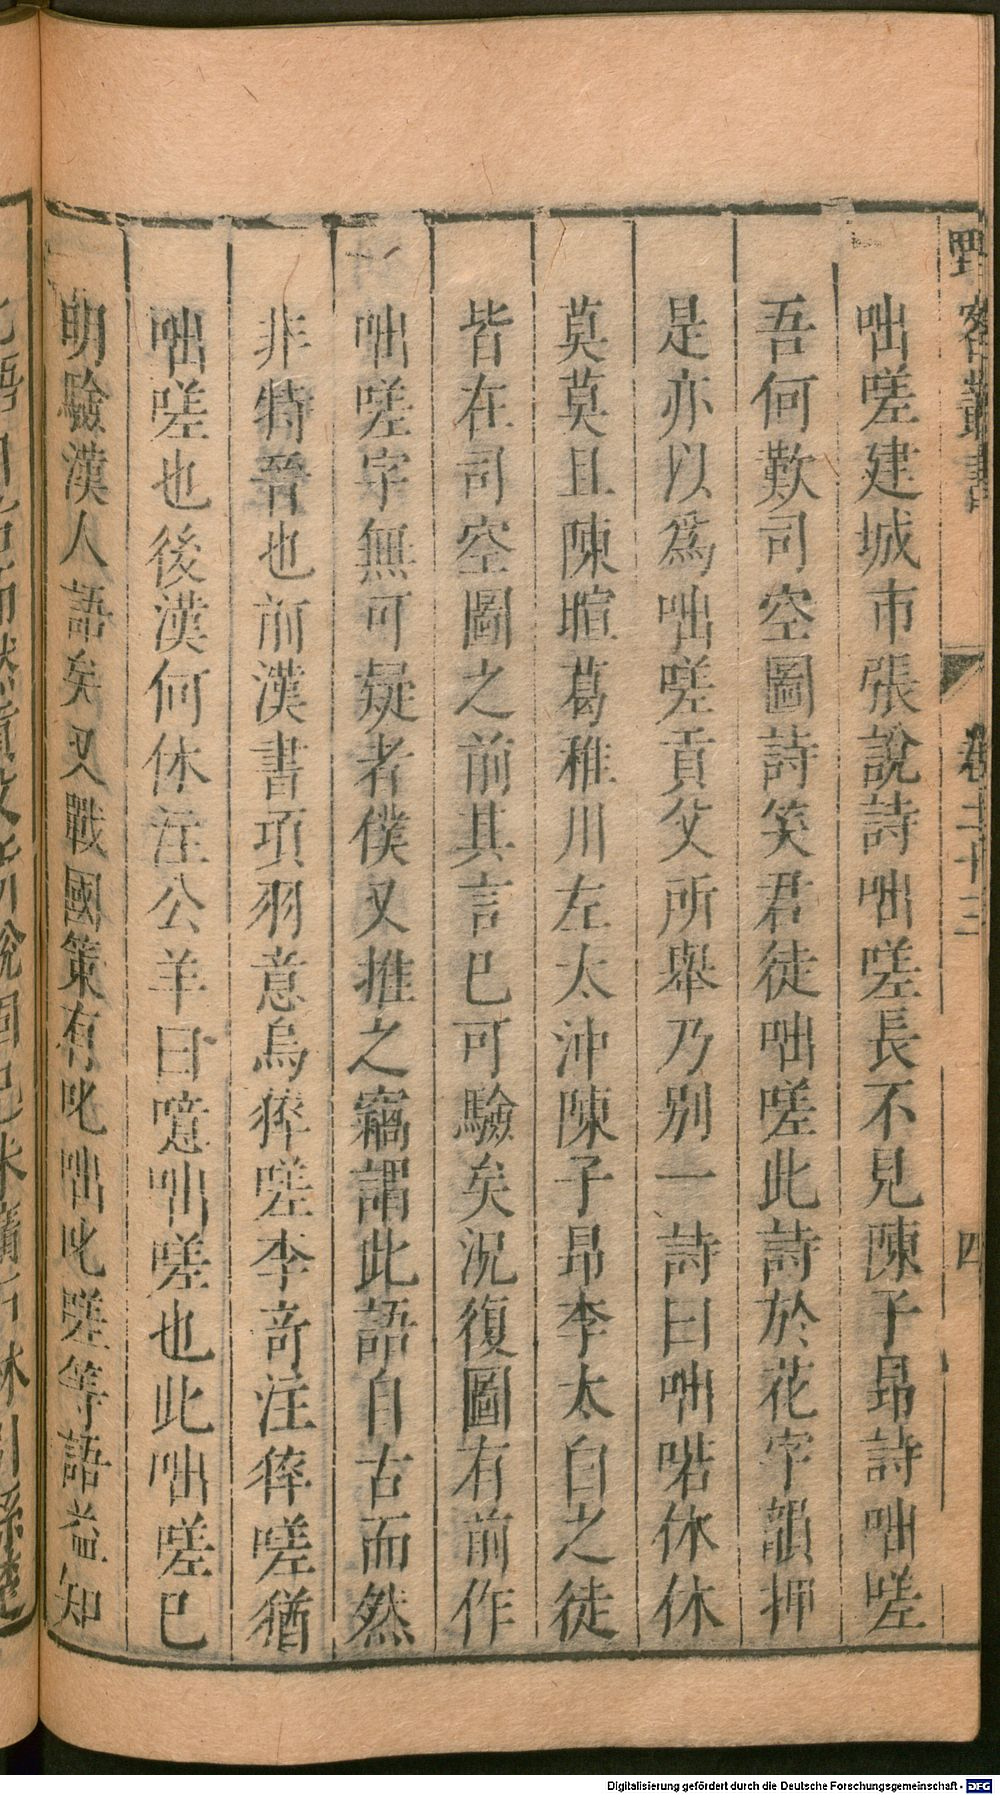 野客叢書　卷二十三　四
咄嗟建城市張說詩咄嗟長不見陳子昂詩咄嗟
吾何歎司空圖詩笑君徒咄嗟此詩於花字韻押
是亦以爲咄嗟貢父所舉乃别一詩曰咄喏休休
莫莫且陳暄葛稚川左太沖陳子昂李太白之徒
皆在司空圖之前其言已可驗矣况復圖有前作
咄嗟字無可疑者僕又推之竊謂此語自古而然
非特晉也前漢書項羽意烏猝嗟李奇注猝嗟猶
咄嗟也後漢何休注公羊曰噫咄嗟也此咄嗟已
明驗漢人語矣又戰國策有叱咄叱嗟等語益知
Digitalisierung gefördert durch die Deutsche Forschungsgemeinschaft - DFG